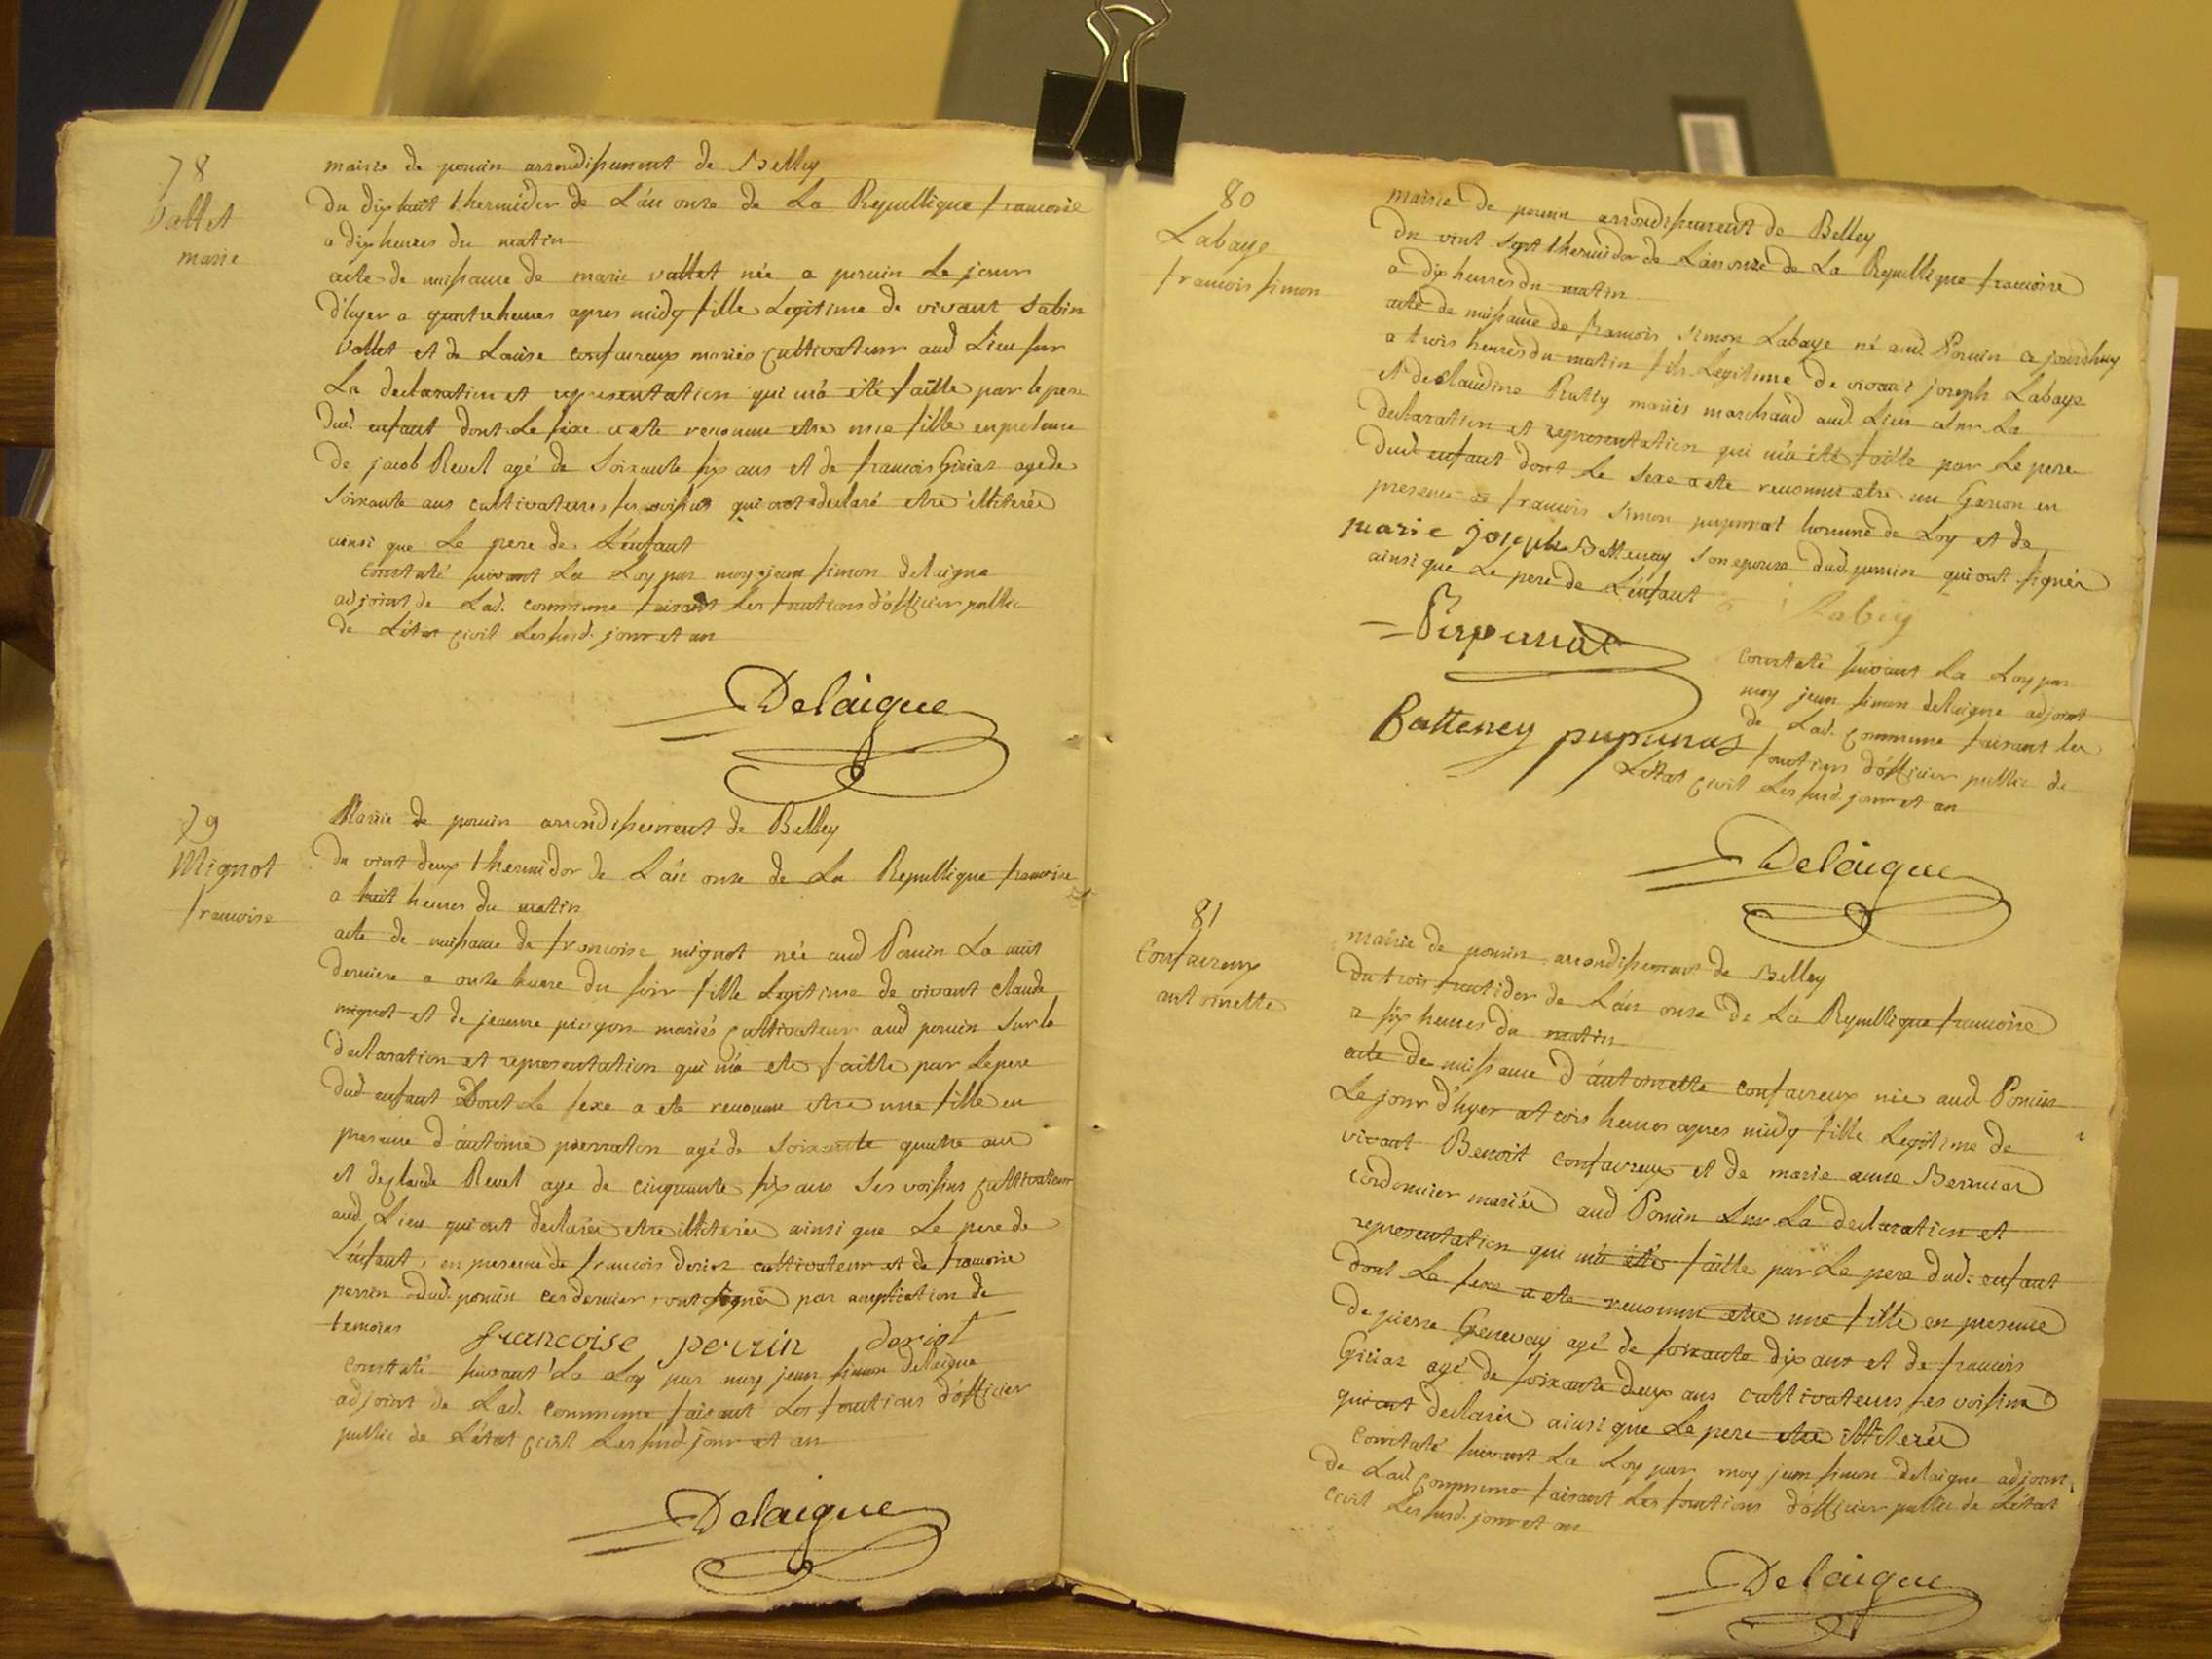 78
Vallet
marie
mairie de poncin arrondissement de Belley
du dix huit thermidor de L'an onze de La Republique francoise
a dix heures du matin
acte de naissance de marie vallet née a poncin Le jour
d'hyer a quatre heures apres midy fille Legitime de vivant Sabin
Vallet et de Louise confavreux mariés cultivateur aud Lieu sur
La declaration et representation qui m'a été faitte par le pere
dud. enfant dont Le sexe a ete reconnu etre une fille en presence
de jacob Revel agé de soixante six ans et de francois Giriat agé de
soixante ans cultivateurs ses voisins qui ont declaré etre illiterés
ainsi que Le pere de L'enfant
constaté suivant La Loy par moy jean simon delaigue
adjoint de Lad. commune faisant Les fonctions d'officier public
de L'état civil Les susd. jour et an
Delaigue
79
Mignot
francoise
Mairie de poncin arrondissement de Belley
du vint deux thermidor de L'an onze de La Republique francoise
a huit heures du matin
acte de naissance de francoise mignot née aud Poncin La nuit
derniere a onze heure du soir fille Legitime de vivant claude
mignot et de jeanne mariés cultivateur aud poncin sur la
declaration et representation qui m'a ete faitte par Le pere
dud enfant Dont Le sexe a ete reconnu etre une fille en
presence d'antoine pierraton agé de soixante quatre ans
et de claude Revel age de cinquante six ans ses voisins cultivateur
aud. Lieu qui ont declarés etre illiterés ainsi que Le pere de
L'enfant, en presence de francois doriat cultivateur et de francoise
perrin dud. poncin ces dernier ont signés par ampliation de
temoins francoise perrin doriat
constaté suivant La Loy par moy jean simon delaigue
adjoint de Lad. commune faisant Les fonctions d'officier
public de L'état civil Les susd. jour et an
Delaigue
80
Labaye
francois simon
mairie de poncin arrondissement de Belley
du vint sept thermidor de L'an onze de La Republique francoise
a dix heures du matin
acte de naissance de francois simon Labaye né aud. Poncin ce jourdhuy
a trois heures du matin fils Legitime de vivant joseph Labaye
et de claudine Rutty mariés marchand aud. Lieu sur La
declaration et representation qui m'a été faitte par Le pere
dud enfant dont Le sexe a ete reconnu etre un Garcon en
presence de francois simon pupunat homme de Loy et de
marie joseph Batteney son epouse dud. poncin qui ont signés
ainsi que Le pere de L'enfant
Labey
Pupunat
Batteney pupunat
constaté suivant La Loy par
moy jean simon delaigue adjoint
de Lad. commune faisant les
fonctions d'officier public de
L'état civil Les susd. jour et an
Delaigue
81
Confavreux
antoinette
mairie de poncin arrondissement de Belley
du trois fructidor de L'an onze de La Republique francoise
a six heures du matin
acte de naissance d'antoinette confavreux née aud. Poncin
Le jour d'hyer a trois heures apres midy fille Legitime de
vivant Benoit confavreux et de marie anne Bernuar
cordonnier mariés aud Poncin sur La declaration et
representation qui m'a été faitte par Le pere dud. enfant
dont Le sexe a ete reconnu etre une fille en presence
de pierre Genevay agé de soixante dix ans et de francois
Giriat agé de soixante deux ans cultivateurs ses voisins
qui ont declarés ainsi que Le pere etre illiterés
constaté suivant La Loy par moy jean simon delaigue adjoint
de Lad commune faisant Les fonctions d'officier public de L'état
civil Les susd. jour et an
Delaigue